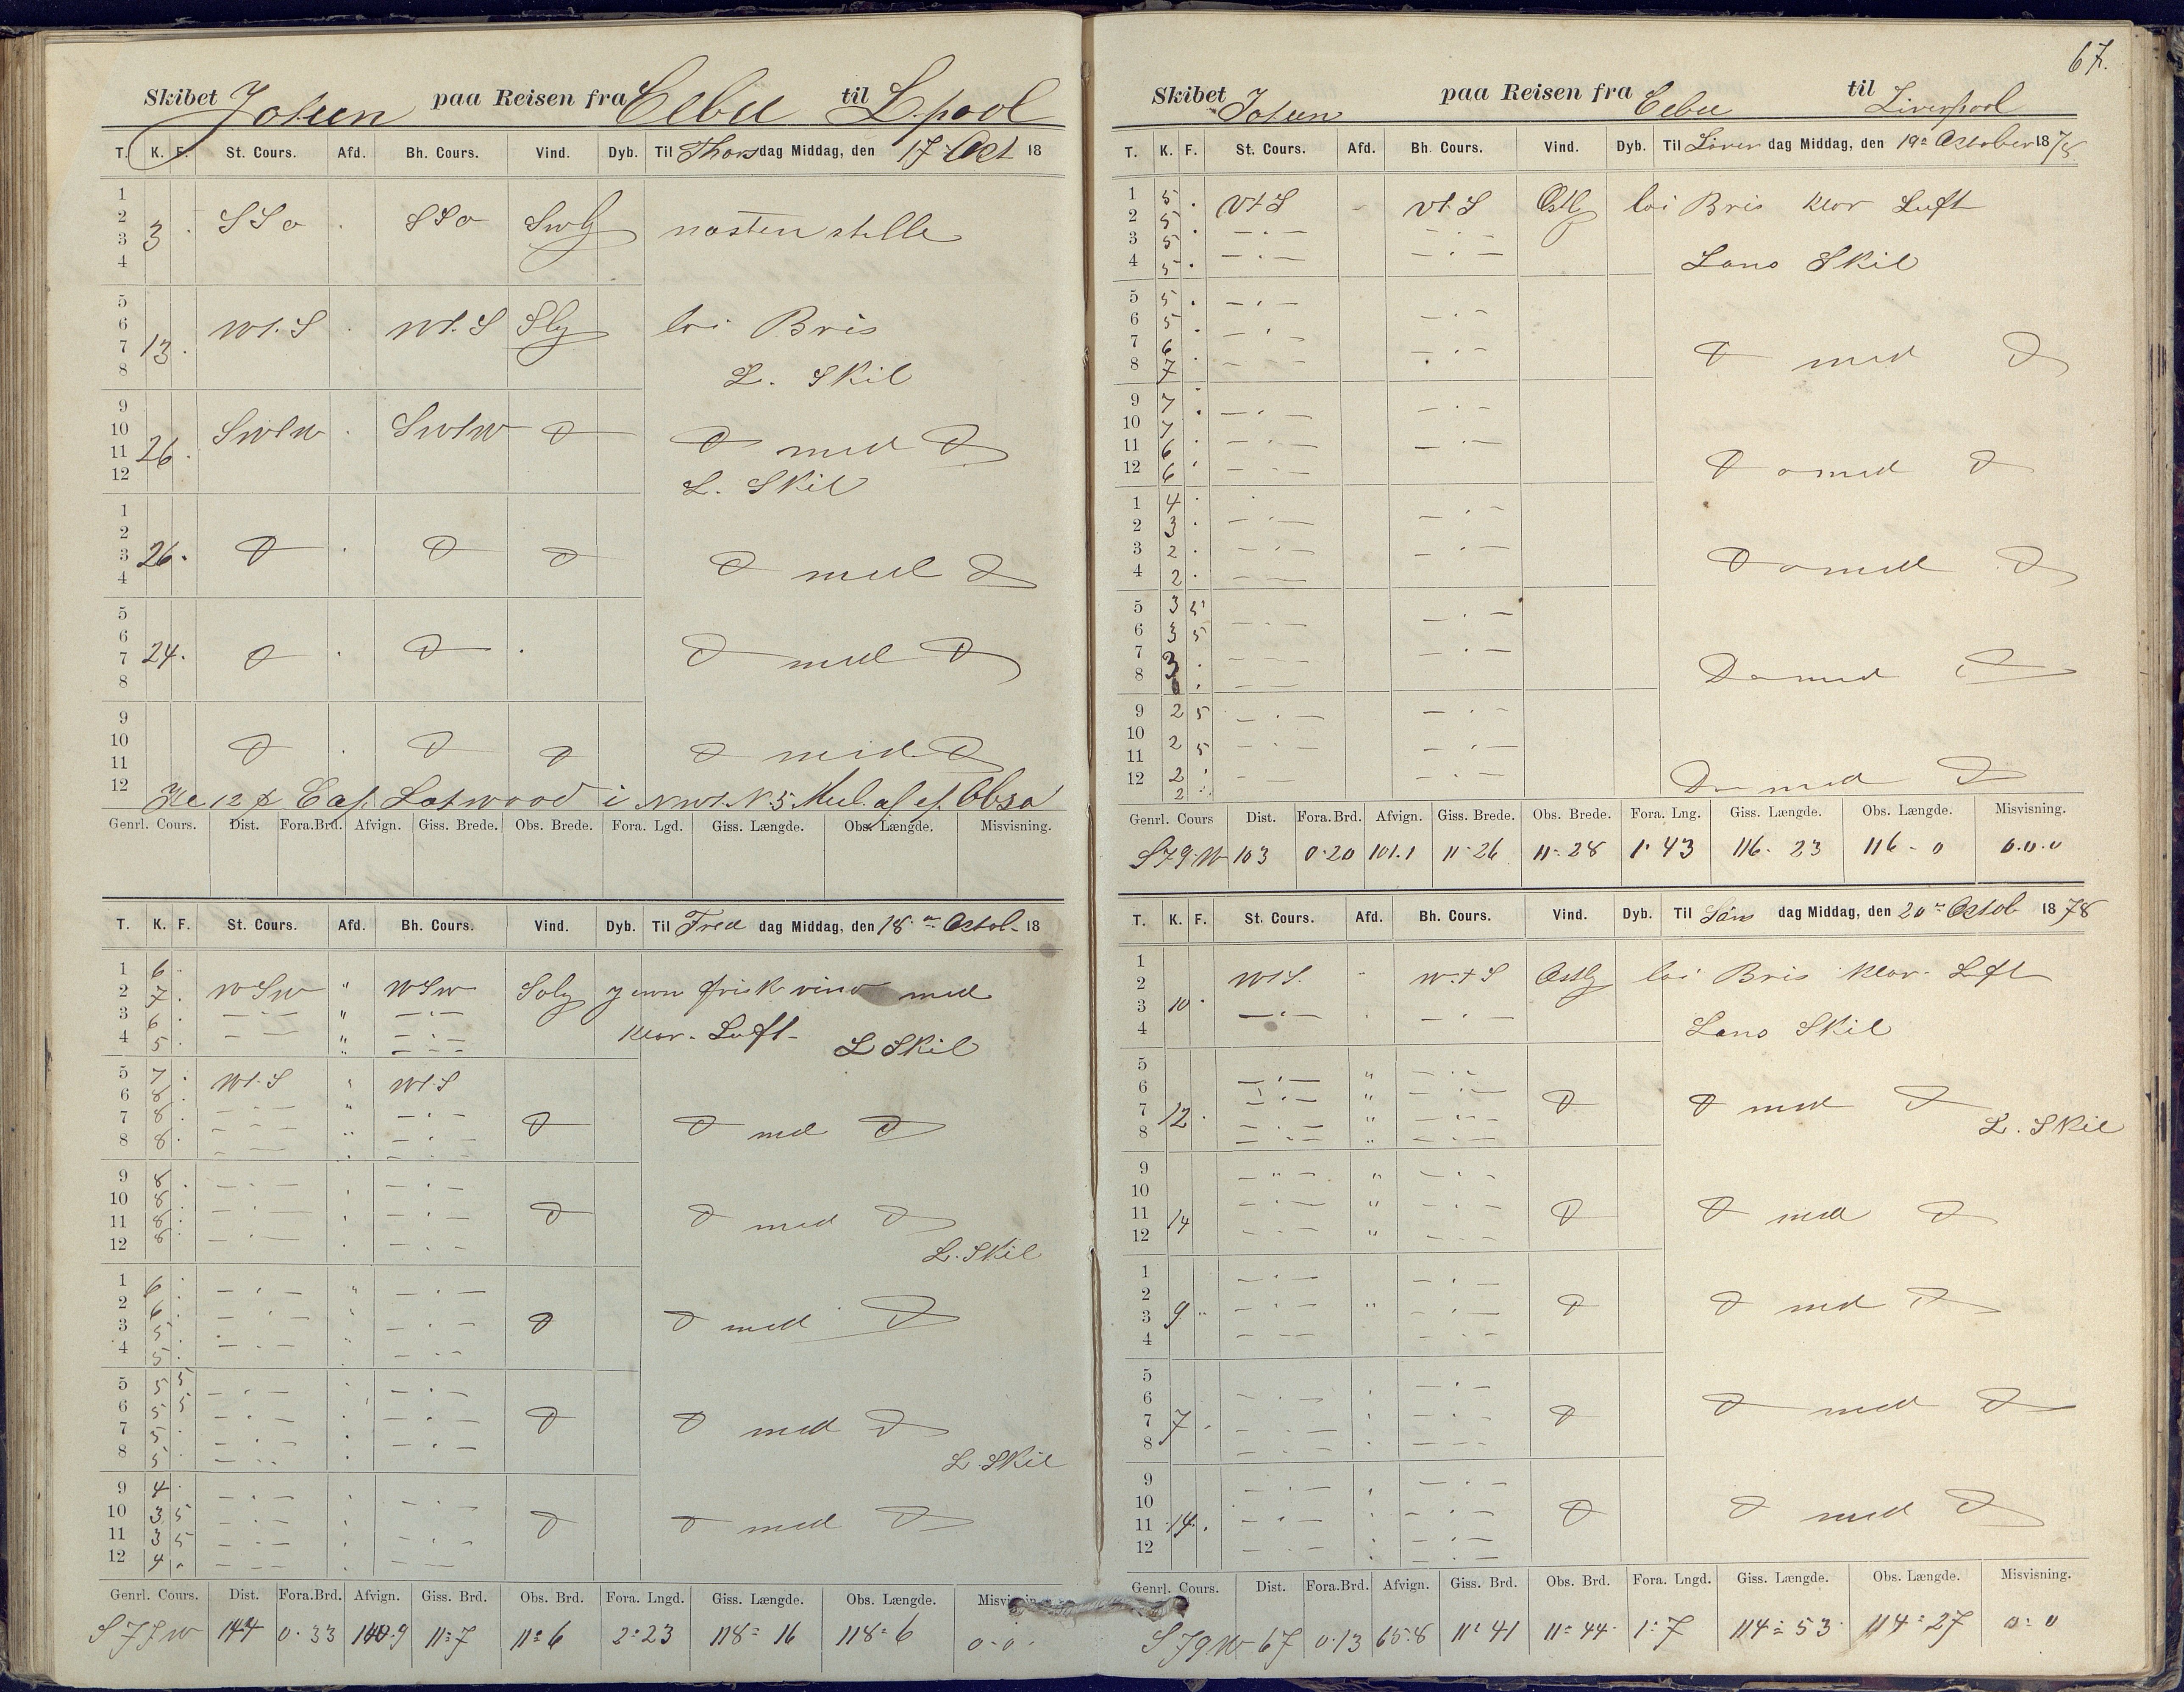 Skibet Jotun paa Reisen fra Cebu til L.pool
T. K. F. St. Cours. Afd. Bh. Cours. Vind. Dyb. Til Thorsdag Middag, den 17 Oct 18
1
2 3 . SSo . SSo Swlg næsten stille
3
4
5
6 13 . Wt.S . Wt.S Slg loi Bris
7
8 L. Skil
9
10 26 . SWtW . SWtW D D med D
11
12 L. Skil
1
2
3 26 . D . D D D med D
4
5
6
7 24 . D . D . D med D
8
9
10 D . D D D med D
11
12 Kl 12 Cap. i NWt.N 5 Mil. af
Genrl. Cours. Dist. Fora.Brd. Afvign. Giss. Brede. Obs. Brede. Fora. Lgd. Giss. Længde. Obs. Længde. Misvisning.
T. K. F. St. Cours. Afd. Bh. Cours. Vind. Dyb. Til Freddag Middag, den 18 Octob. 18
1 6 .
2 7 . WSW " WSW Solg jevn frisk vind med
3 6 . — . — " — . —
4 5 . — — " — . — klar. Luft - L Skil
5 7 . Wt.S " Wt.S
6 8 . — . — " — . —
7 8 . — . — " — . — D D med D
8 8 . — — — . —
9 8 . — . — . — . —
10 8 . — . — . — . — D D med D
11 8 .
12 8 . — . — . — . — L. Skil
1 6 . — . — " — . —
2 6 . — . — — . — D D med D
3 5 .
4 5 . — . — — . —
5 5 5 — . — . — . —
6 5 5 — . — . — . — D D med D
7 5 . — . — . — . —
8 5 . — . . . L. Skil
9 4 . — . — . — . —
10 3 5 — . — . D D med D
11 3 5 — . — . — . —
12 4 . — — . — —
Genrl. Cours. Dist. Fora.Brd. Afvign. Giss. Brd. Obs. Brd. Fora. Lngd. Giss. Længde. Obs. Længde. Misvisning.
S 77 W 144 0. 33 140.9 11=7 11=6 2=23 118=16 118=6 0-0.
67.
Skibet Jotun paa Reisen fra Cebu til Liverpool
T. K. F. St. Cours. Afd. Bh. Cours. Vind. Dyb. Til Löver dag Middag, den 19= October 1878
1 5 . Vt S - Vt. S Östlg loi Bris klar Luft
2 5 . — . — — . —
3 5
4 5 . — . — — . — Lans Skil
5 5 . — . —
6 5 . — . — — . —
7 6 . — . — — . — D med D
8 7 —
9 7 . — . — — . —
10 7 — . — — . —
11 6
12 6 . — . — D o med D
1 4 . .
2 3 . — . — — . —
3 2 . — . — — . — D o med D
4 2 . — —
5 3 5
6 3 5 — . — — . —
7 3 . — — — . —
8 . — — D o med D
9 2 5 — . — — . —
10
11 2 5 — . — — . —
12 2 . — — — . — Do med D
2
Genrl. Cours Dist. Fora.Brd. Afvign. Giss. Brede. Obs. Brede. Fora. Lng. Giss. Længde. Obs. Længde. Misvisning.
S 79. W 103 0.20 101.1 11=26 11=28 1.43 116-23 116-0 0.0.0
T. K. F. St. Cours. Afd. Bh. Cours. Vind. Dyb. Til Søn dag Middag, den 20 Octob 1878
1
2 WtS. - W.tS Östlg loi Bris klar. Luft
3 10 .
4 — . — . — . — Lans Skil
5
6 — . — " — . —
7 12 . — . — " — . — D D med D
8 — . — " — . — L. Skil
9 — " — " — . —
10
11 14 — . — " — . — D D med D
12 — . — " — . —
1 — . — — . —
2
3 9 " — . — " — . — D D med D
4 — — — . —
5
6 — . — . — . —
7 7 . — . — . — D D med D
8 — . — . — . —
9 — . — . — . —
10
11 14 . — . — . — . — D D med D
12 — . — . — . —
Genrl. Cours. Dist. Fora.Brd. Afvign. Giss. Brd. Obs. Brd. Fora. Lngd. Giss. Længde. Obs. Længde. Misvisning.
S 79 W 67 0.13 65.8 11.41 11=44 1=7 114=53 114=27 0=0